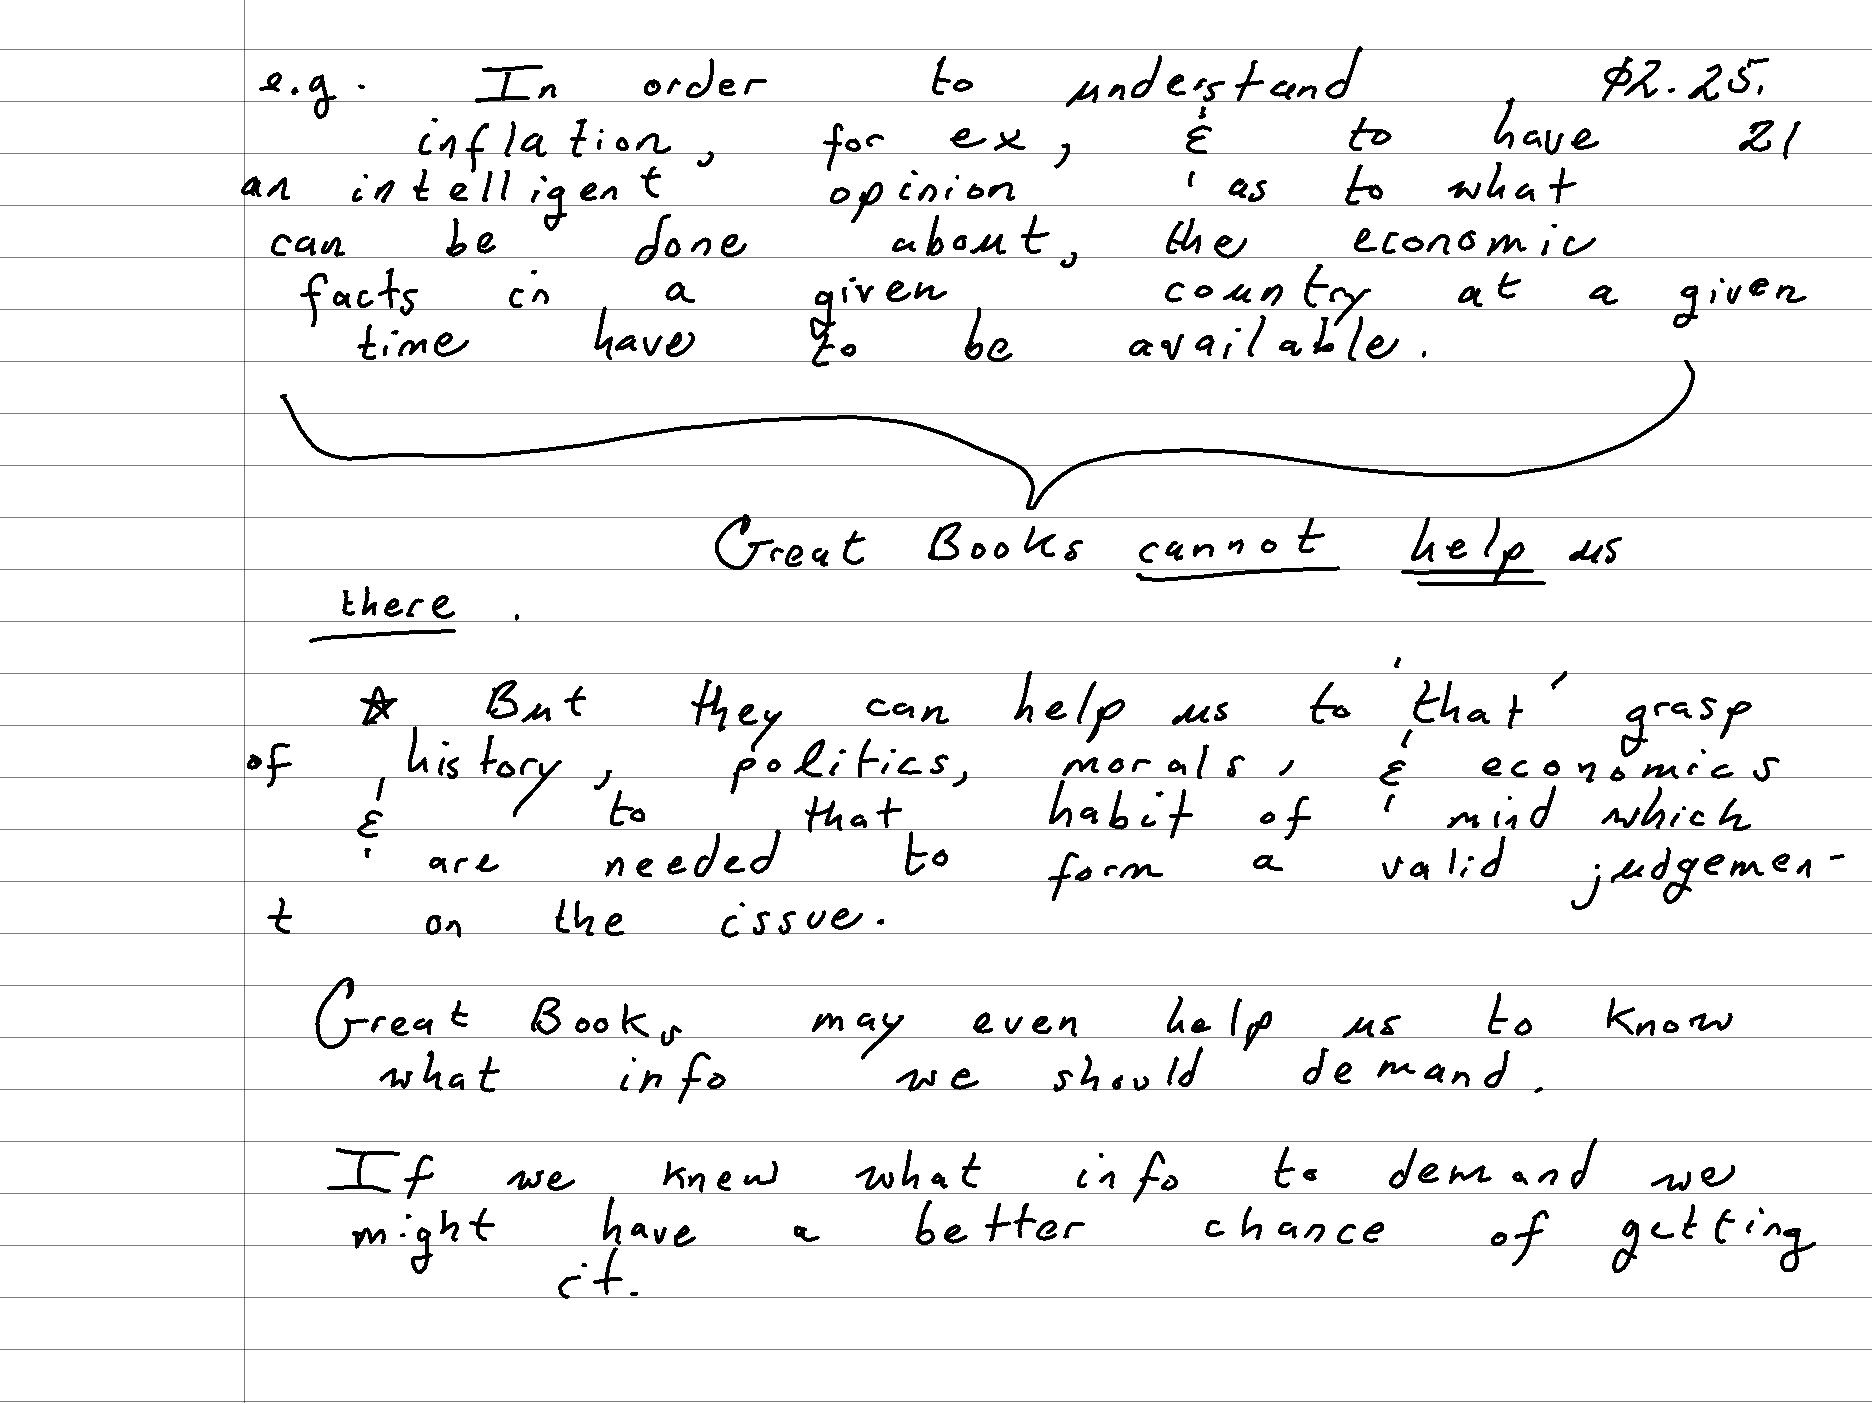 e.g. In order to understand $2.25.
inflation, for ex, & to have 21
an intelligent opinion as to what
can be done about, the economic
facts in a given country at a given
time have to be available.
Great Books cannot help us
there.
☆ But they can help us to 'that' grasp
of history, politics, morals, & economics
& to that habit of mind which
are needed to form a valid judgemen-
t on the issue.
Great Books may even help us to know
what info we should demand.
If we knew what info to demand we
might have a better chance of getting
it.